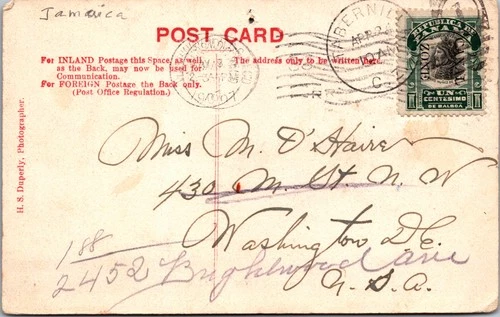 Jamaica
POST CARD
For INLAND Postage this Space, as well as the Back, may now be used for Communication.
For FOREIGN Postage the Back only.
(Post Office Regulation.)
The address only to be written here.
H. S. Duperly, Photographer.
REPUBLICA DE PANAMA
UN
CENTESIMO
DE BALBOA
Miss M. D'Haire
430 M. St. N. W
Washington D.C.
188
2452 Brightwood ave
U. S. A.